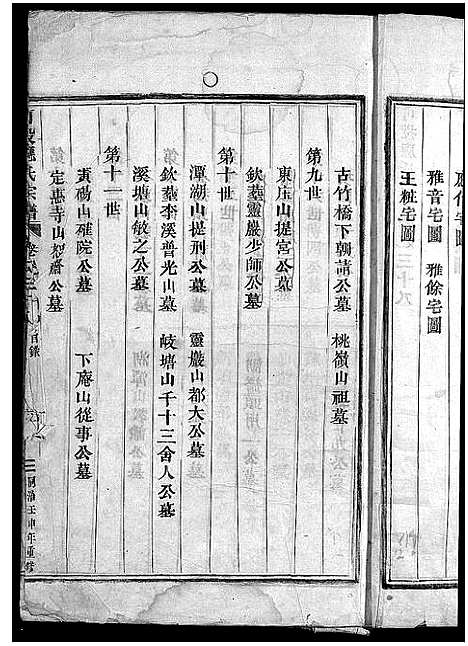 雅音宅圖　雅餘宅圖
王粧宅圖
古竹橋下朝請公墓　桃嶺山祖墓
第九世
東庄山提宮公墓
欽葬靈巖少師公墓
第十世
潭湖山提刑公墓　靈巖山都大公墓
欽葬李溪普光山墓　岐塘山千十三舍人公墓
溪塘山敏之公墓
第十一世
黃碭山確院公墓　下庵山從事公墓
定惠寺山恕齋公墓
氏宗譜
目錄
同治壬申年重修